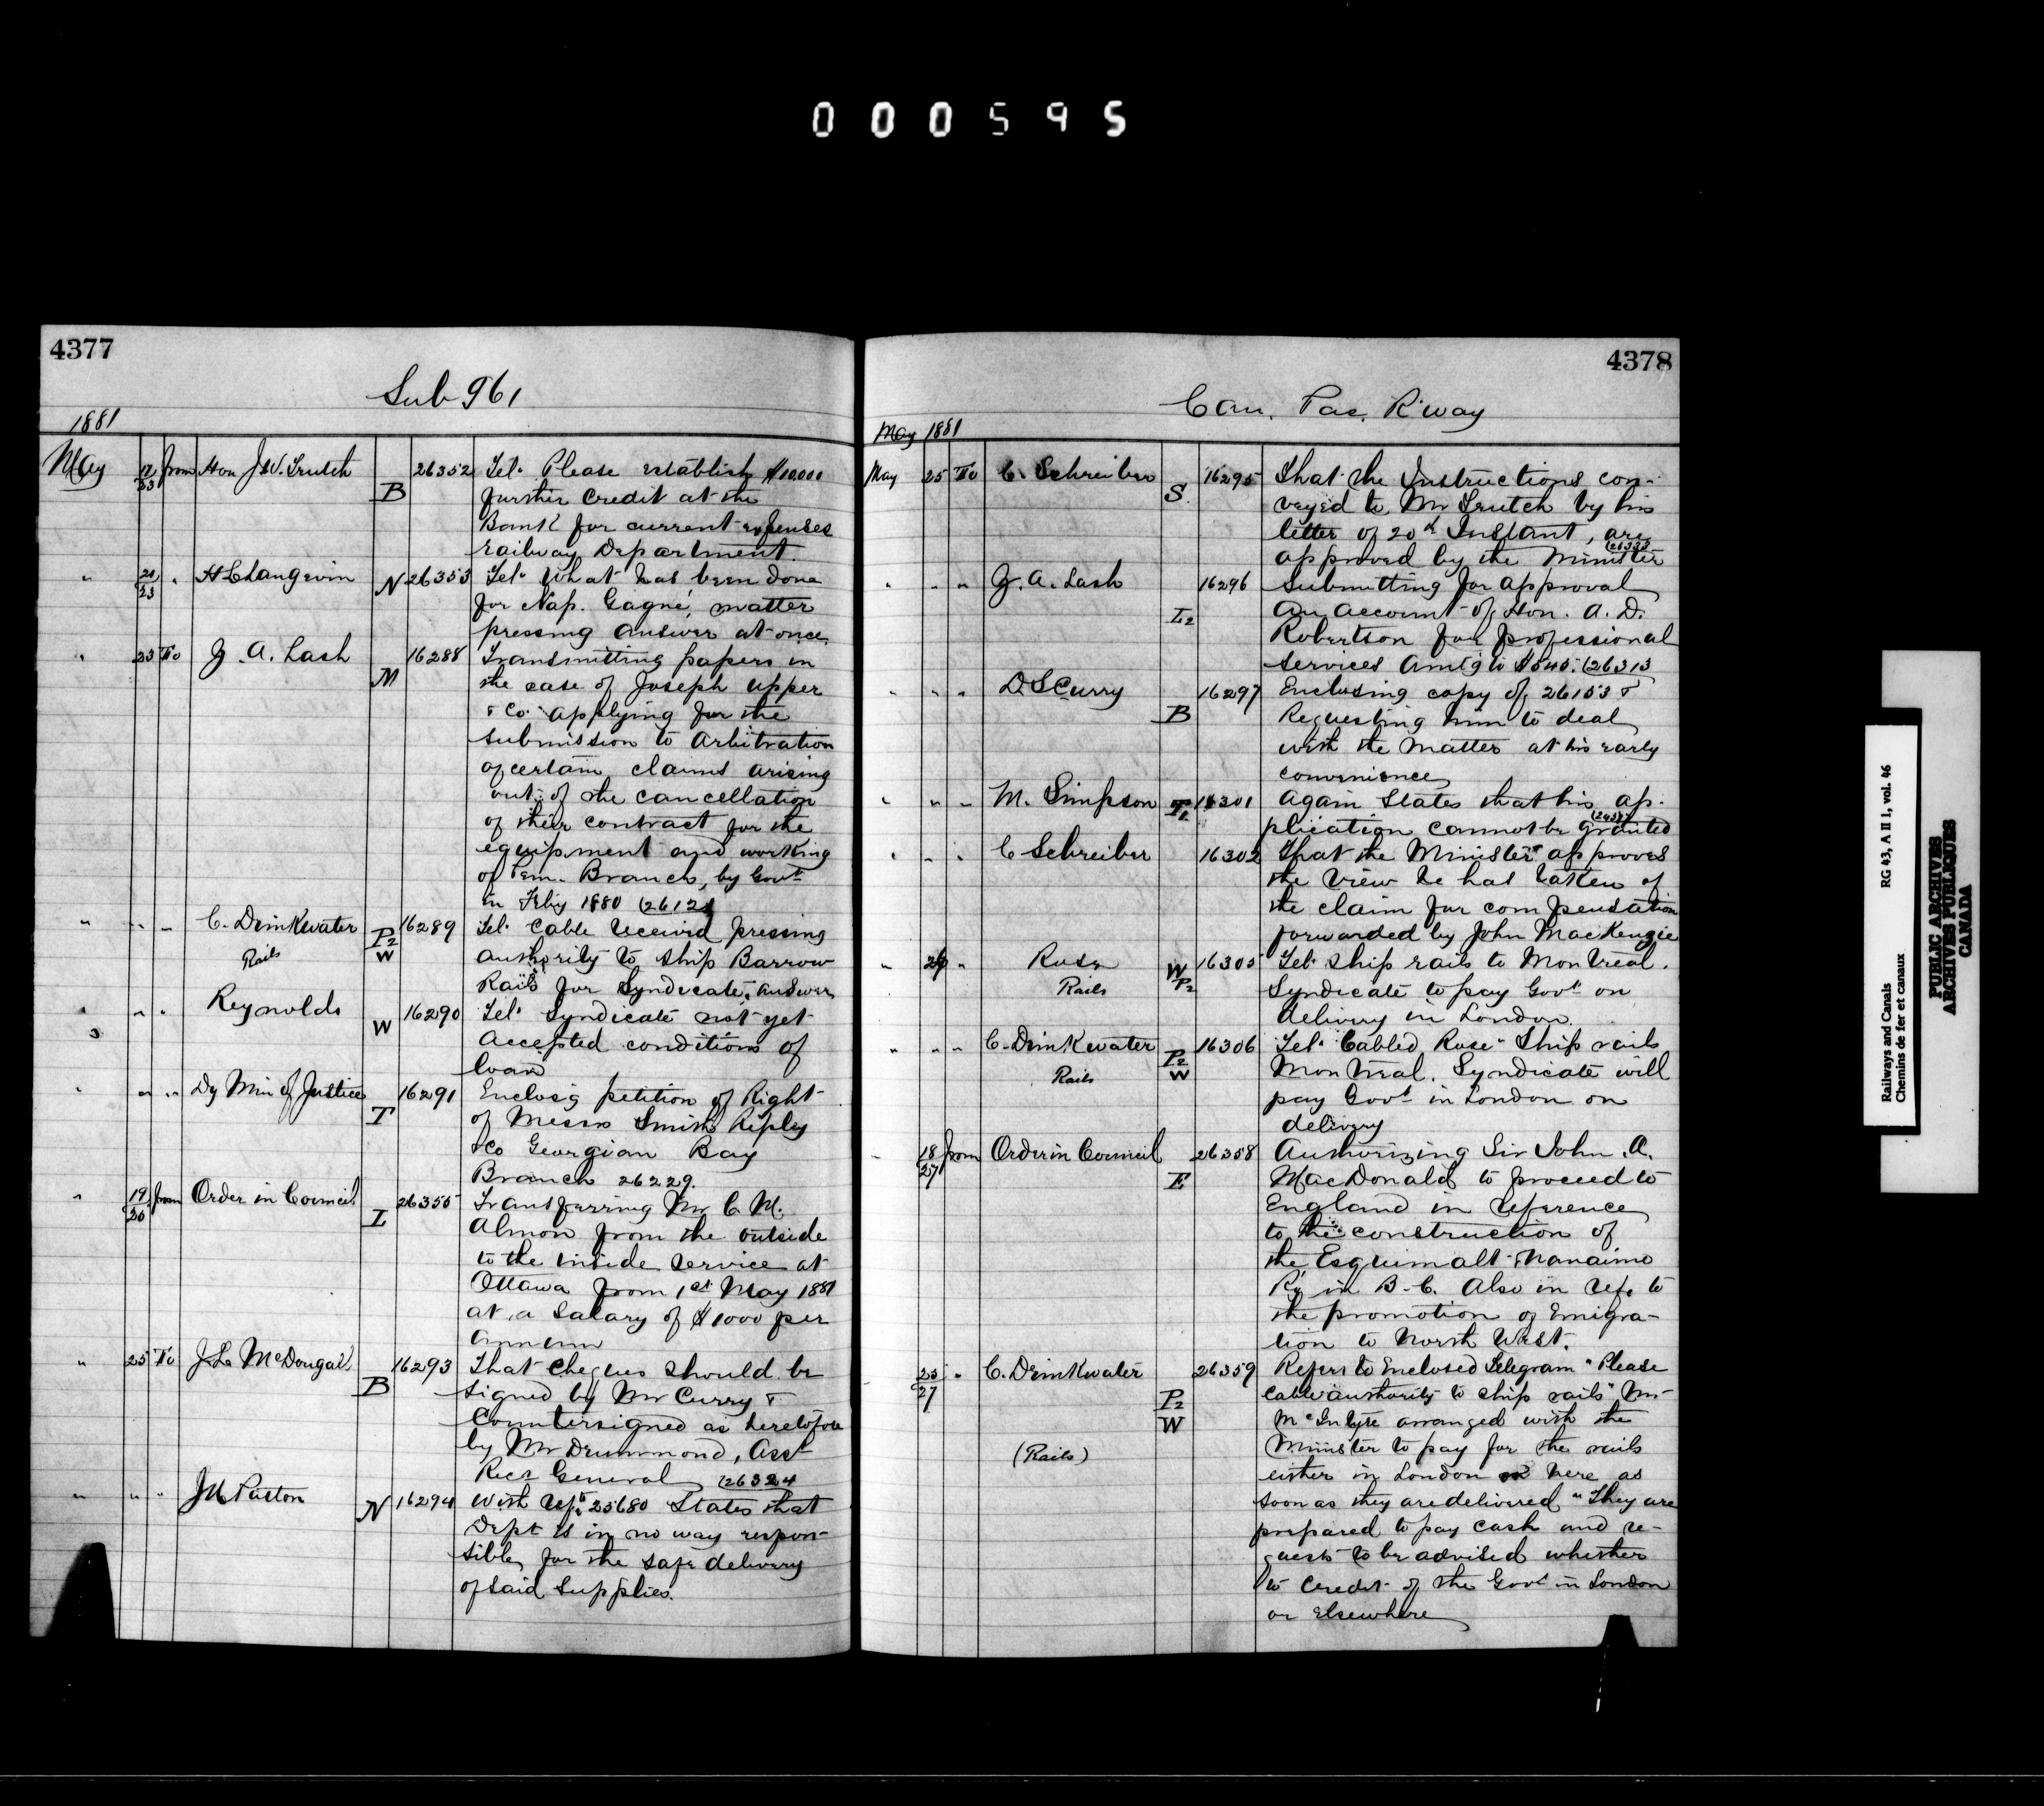 000595
4377
Sub 961
1881
May 12/23 from Hon J.W. Trutch B 26352 Tel. Please establish $10.000
further credit at the
Bank for current expenses
railway Department.
" 21/23 " H L Langevin N 26353 Tel. What has been done
for Nap. Gagné, matter
pressing answer at once
" 23 To Z. A. Lash M 16288 Transmitting papers in
the case of Joseph Upper
& Co. applying for the
submission to Arbitration
of certain claims arising
out of the cancellation
of their contract for the
equipment and working
of Pem. Branch, by Govt
in Feby 1880 (2612
" " " C. Drinkwater P2 W 16289 Tel. Cable received pressing
Rails
authority to ship Barrow
Rails for Syndicate, answer
" " " Reynolds W 16290 Tel. Syndicate not yet
accepted conditions of
loan
" " " Dy Min of Justice T 16291 Enclosg petition of Right
of Messrs Smith Ripley
& Co Georgian Bay
Branch 26229.
" 19/26 from Order in Council I 26355 Transferring Mr C. M.
Almon from the outside
to the inside service at
Ottawa from 1st May 1881
at a salary of $1000 per
annum
" 25 To J. L. McDougall B 16293 That cheques should be
signed by Mr Curry &
Countersigned as heretofore
by Mr Drummond, Asst
Recr General (26324
" " " N 16294 With refce 25680 States that
Dept is in no way respon-
sible for the safe delivery
of said supplies.
4378
Can. Pac. R'way
May 1881
May 25 To C. Schreiber S. 16295 That the Instructions con-
veyed to Mr Trutch by his
letter of 20th Instant, are
approved by the Minister
" " " Z. A. Lash L2 16296 Submitting for approval
an account of Hon. A. D.
Robertson for professional
services amtg to $545. (26313
" " " D S Curry B 16297 Enclosing copy of 26153 &
Requesting him to deal
with the matter at his early
convenience
" " " M. Simpson T2 16301 Again States that his ap-
plication cannot be granted
" " " C Schreiber 16302 That the Minister approves
the view he has taken of
the claim for compensation
forwarded by John MacKenzie
" 26 " Rose W P2 16305 Tel. Ship rails to Montreal.
Rails
Syndicate to pay Govt on
delivery in London.
" " " C. Drinkwater P2 W 16306 Tel. Cabled Rose "Ship rails
Rails
Montreal. Syndicate will
pay Govt in London on
delivery
" 18/27 from Order in Council E 26358 Authorizing Sir John A.
MacDonald to proceed to
England in reference
to the construction of
the Esquimalt & Nanaimo
Ry in B.C. Also in refe to
the promotion of Emigra-
tion to North West.
25/27 " C. Drinkwater P2 W 26359 Refers to Enclosed Telegram "Please
cable authority to ship rails" Mr
McIntyre arranged with the
(Rails)
Minister to pay for the rails
either in London or here as
soon as they are delivered "They are
prepared to pay cash and re-
quests to be advised whether
to credit of the Govt in London
or elsewhere
Railways and Canals RG 43, A II 1, vol. 46
Chemins de fer et canaux
PUBLIC ARCHIVES
ARCHIVES PUBLIQUES
CANADA